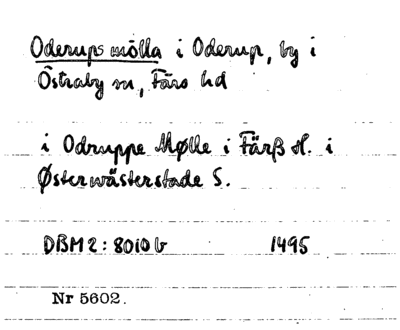 Oderups mölla i Oderup, by i
Östraby sn, Färs hd
i Odruppe Mølle i Färß H. i
Østerwästerstade S.
DBM 2: 8010 b 1495
Nr 5602.